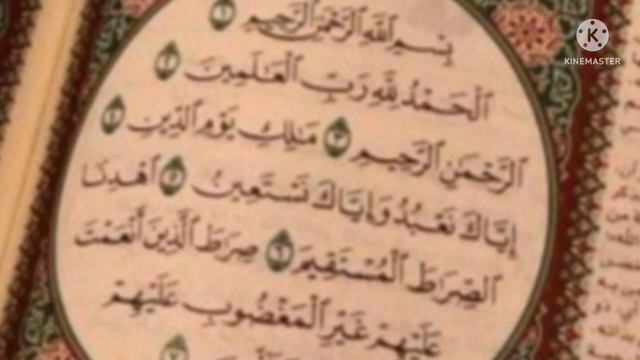 بِسْمِ ٱللَّهِ ٱلرَّحْمَٰنِ ٱلرَّحِيمِ ١
ٱلْحَمْدُ لِلَّهِ رَبِّ ٱلْعَٰلَمِينَ ٢
ٱلرَّحْمَٰنِ ٱلرَّحِيمِ ٣ مَٰلِكِ يَوْمِ ٱلدِّينِ ٤
إِيَّاكَ نَعْبُدُ وَإِيَّاكَ نَسْتَعِينُ ٥ ٱهْدِنَا
ٱلصِّرَٰطَ ٱلْمُسْتَقِيمَ ٦ صِرَٰطَ ٱلَّذِينَ أَنْعَمْتَ
عَلَيْهِمْ غَيْرِ ٱلْمَغْضُوبِ عَلَيْهِمْ
KINEMASTER